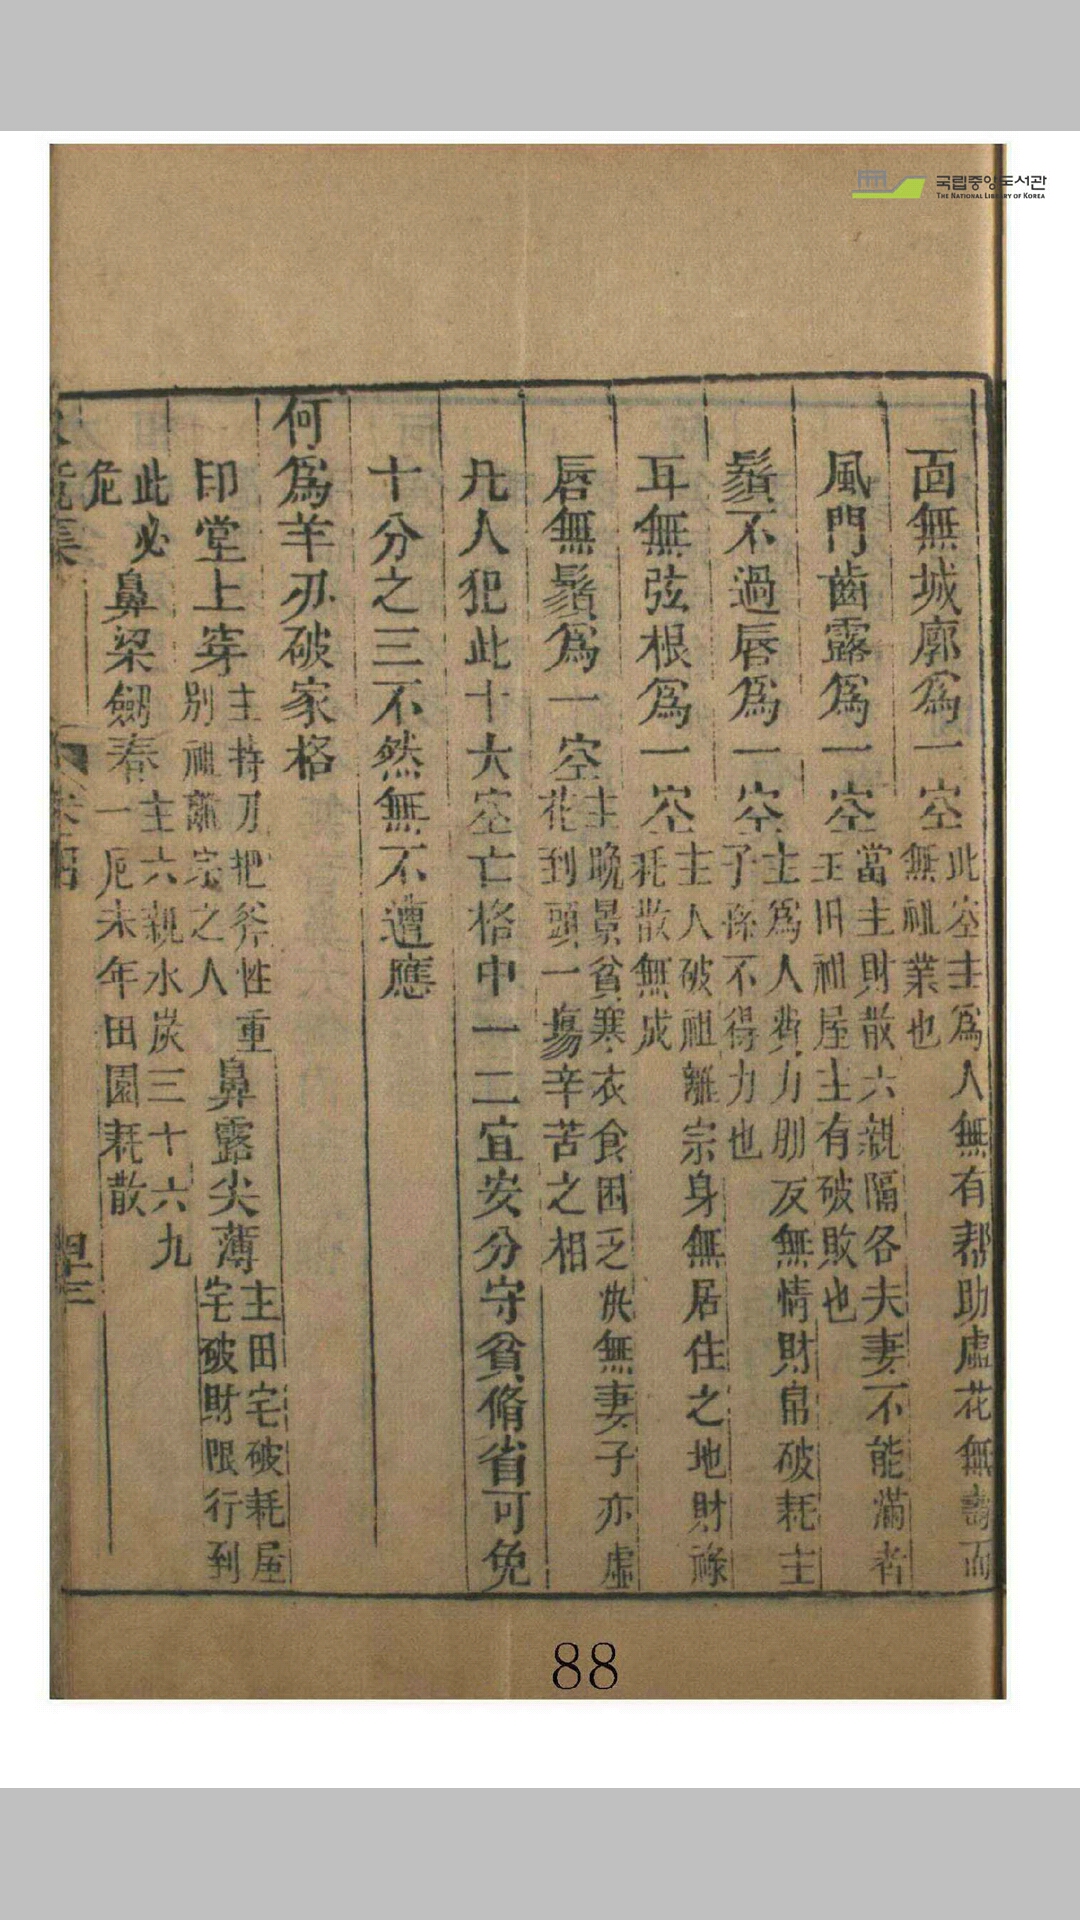 국립중앙도서관
THE NATIONAL LIBRARY OF KOREA
面無城廓爲一空 此空主爲人無有帮助虛花無壽而無祖業也
風門齒露爲一空 當主財散六親隔各夫妻不能滿者主田祖屋主有破敗也
鬚不過唇爲一空 主爲人費力朋友無情財帛破耗主子孫不得力也
耳無弦根爲一空 主人破祖離宗身無居住之地財祿耗散無成
唇無鬚爲一空 主晚景貧寒衣食困乏 無妻子亦虛花到頭一塲辛苦之相
凡人犯此十大空亡格中一二宜安分守貧脩省可免
十分之三不然無不遭應
何爲羊刃破家格
印堂上穿 主持刀把斧性重別祖離宗之人 鼻露尖薄 主田宅破耗屋宅破財限行到
此必危 鼻梁劒脊 主六親水炭三十六九一厄未年田園耗散
集
88